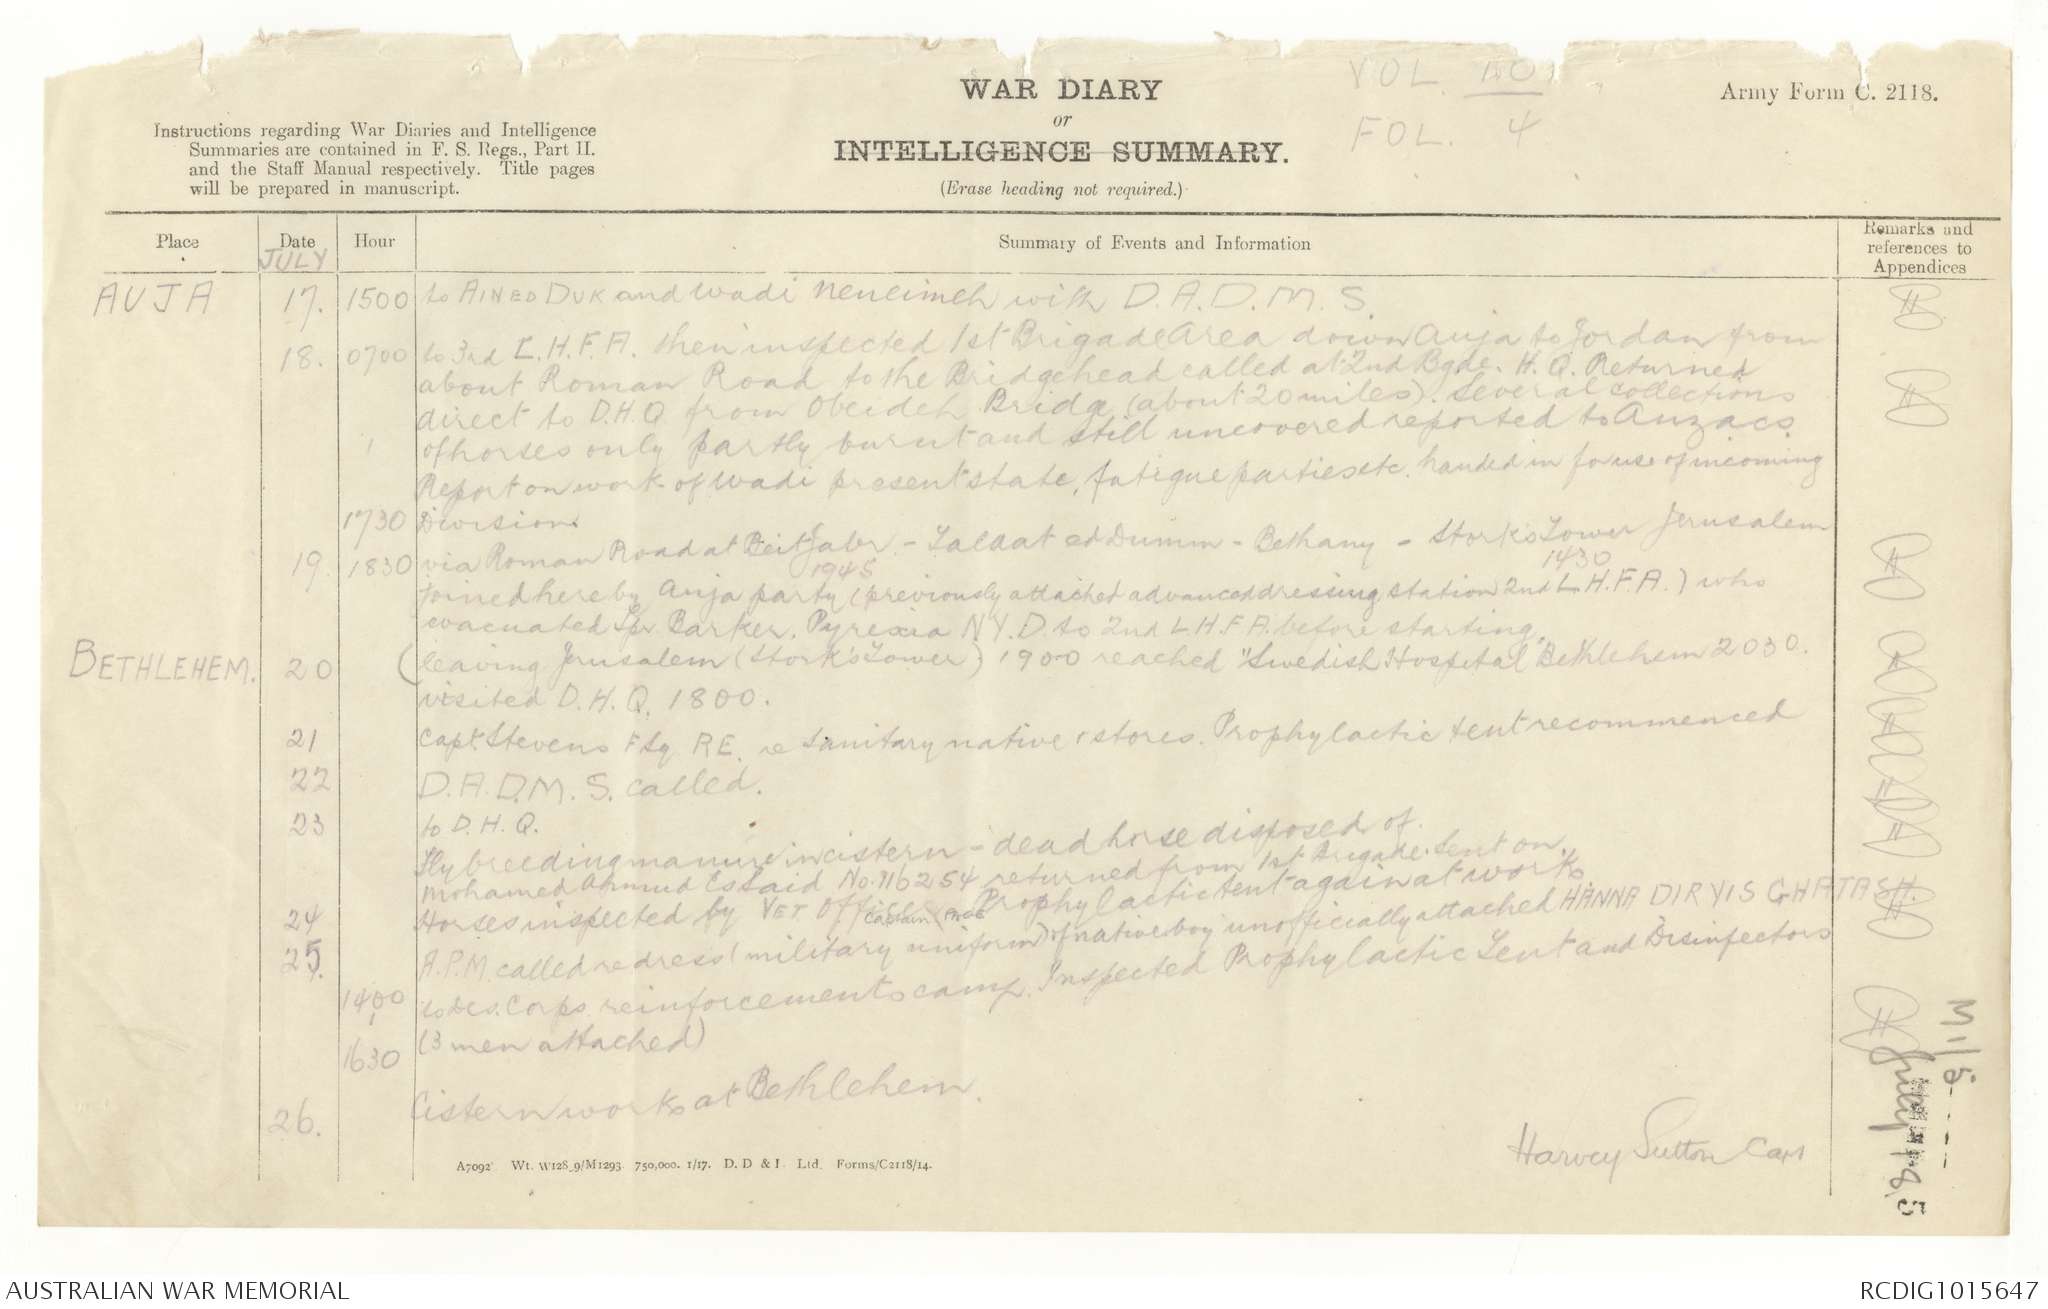 WAR DIARY
or
INTELLIGENCE SUMMARY.
(Erase heading not required.)
VOL.
FOL. 4
Army Form C. 2118.
Instructions regarding War Diaries and Intelligence
Summaries are contained in F. S. Regs., Part II.
and the Staff Manual respectively. Title pages
will be prepared in manuscript.
Place Date Hour Summary of Events and Information Remarks and references to Appendices
JULY
AUJA 17. 1500 to AINED DUK and Wadi Neneimeh with D.A.D.M.S.
18. 0700 to 3rd L.H.F.A. then inspected 1st Brigade Area down Auja to Jordan from
about Roman Road to the Bridgehead called at 2nd Bgde. H.Q. Returned
direct to D.H.Q from Obeideh Bridge (about 20 miles). Several collections
of horses only partly burnt and still uncovered reported to Anzacs.
Report on work of Wadi present state, fatigue parties etc. handed in for use of incoming
1730 Division.
19. 1830 via Roman Road at Beit Jabr - Talaat ed Dumm - Bethany - Stork's Tower Jerusalem
1945 1430
joined here by Auja party (previously attached advanced dressing station 2nd L.H.F.A.) who
evacuated Spr. Barker. Pyrexia N.Y.D. to 2nd L.H.F.A. before starting.
BETHLEHEM. 20 (leaving Jerusalem (Stork's Tower) 1900 reached "Swedish Hospital" Bethlehem 2030.
visited D.H.Q. 1800.
21 Capt. Stevens F Sq R.E. re sanitary native stores. Prophylactic tent recommenced
22 D.A.D.M.S. called.
23 to D.H.Q.
Fly breeding manure in cistern - dead horse disposed of.
Mohamed Ahmud Es Said No. 116254 returned from 1st Brigade. Sent on.
24 Horses inspected by VET. Officer Prophylactic tent again at work
Captain
25. A.P.M. called re dress (military uniform) of native boy unofficially attached HANNA DIRYIS GHATASH.
1400 to Des. Corps reinforcements camp. Inspected Prophylactic Tent and Disinfectors
1630 (3 men attached)
26. Cistern works at Bethlehem.
Harvey Sutton Capt
A7092 Wt. W128_9/M1293 750,000. 1/17. D. D & L Ltd. Forms/C2118/14.
AUSTRALIAN WAR MEMORIAL RCDIG1015647